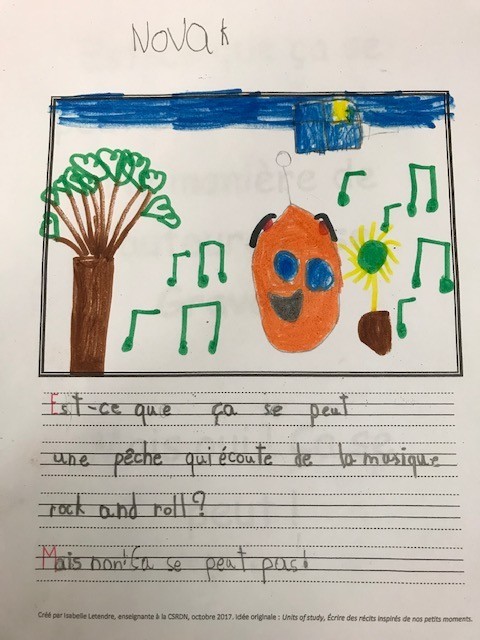 Novak
Est-ce que ça se peut
une pêche qui écoute de la musique
rock and roll?
Mais non! Ça se peut pas!
Créé par Isabelle Letendre, enseignante à la CSRDN, octobre 2017. Idée originale : Units of study, Écrire des récits inspirés de nos petits moments.